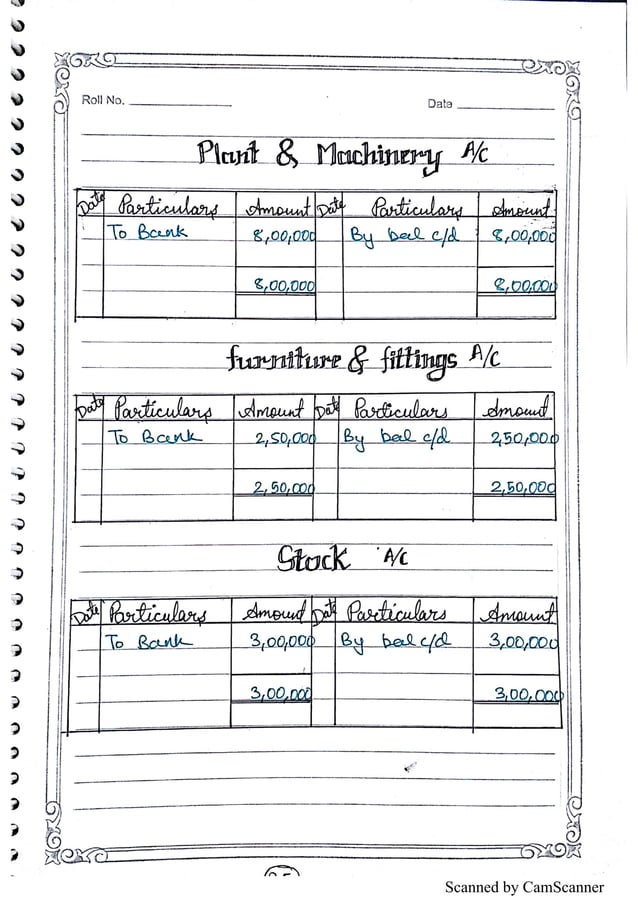 Roll No. Date
Plant & Machinery A/C
Date Particulars Amount Date Particulars Amount
To Bank 8,00,000 By bal c/d 8,00,000
8,00,000 8,00,000
furniture & fittings A/C
Date Particulars Amount Date Particulars Amount
To Bank 2,50,000 By bal c/d 2,50,000
2,50,000 2,50,000
Stock A/C
Date Particulars Amount Date Particulars Amount
To Bank 3,00,000 By bal c/d 3,00,000
3,00,000 3,00,000
Scanned by CamScanner